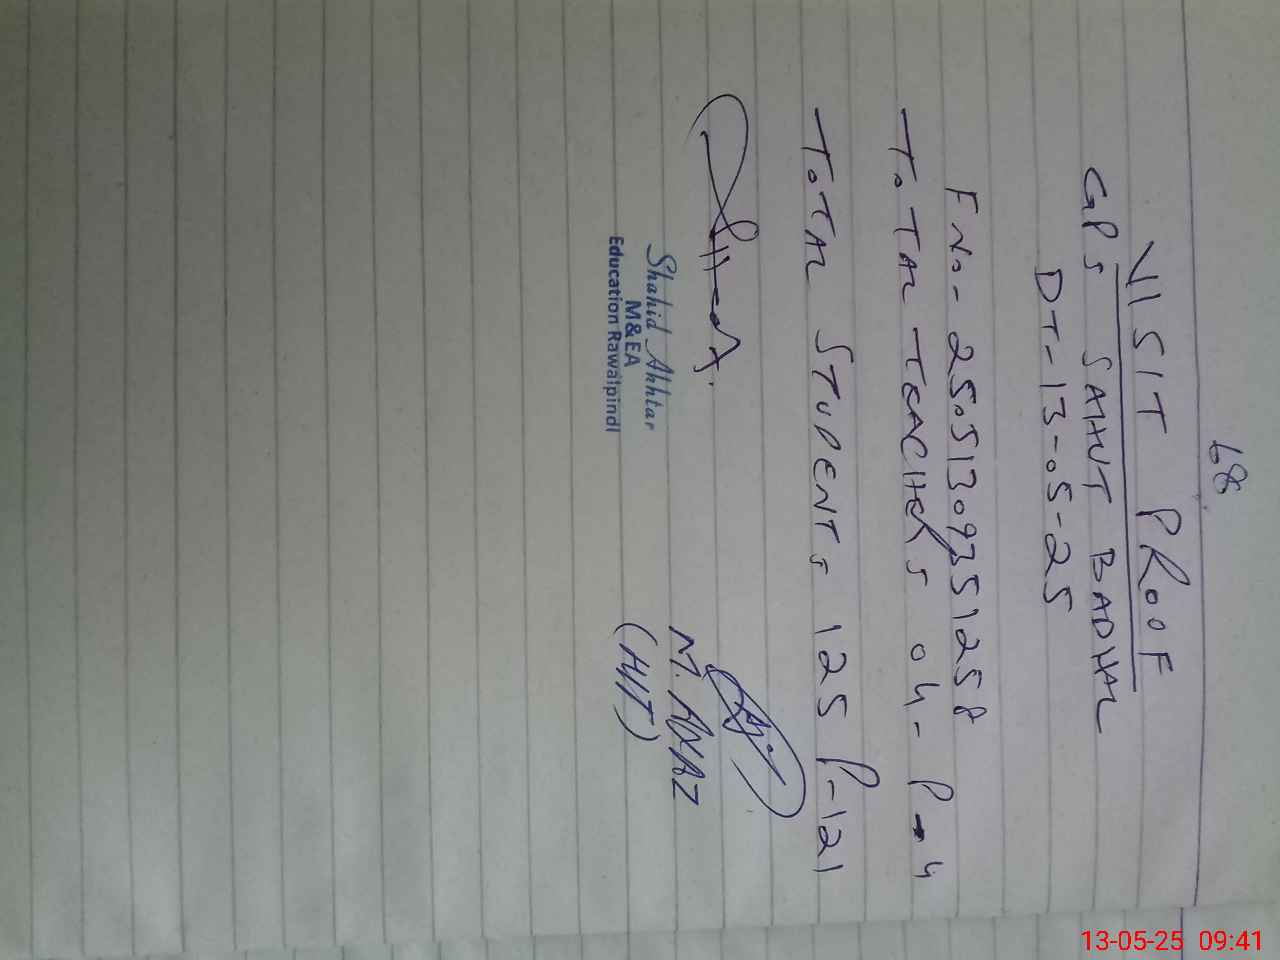 68
VISIT PROOF
GPS SAHUT BADHAL
DT-13-05-25
F No- 25051309351258
TOTAL TEACHERS 04- P-4
TOTAL STUDENTS 125 P-121
Shahid Akhtar
M&EA
Education Rawalpindi
M. AYAZ
(HIT)
13-05-25 09:41